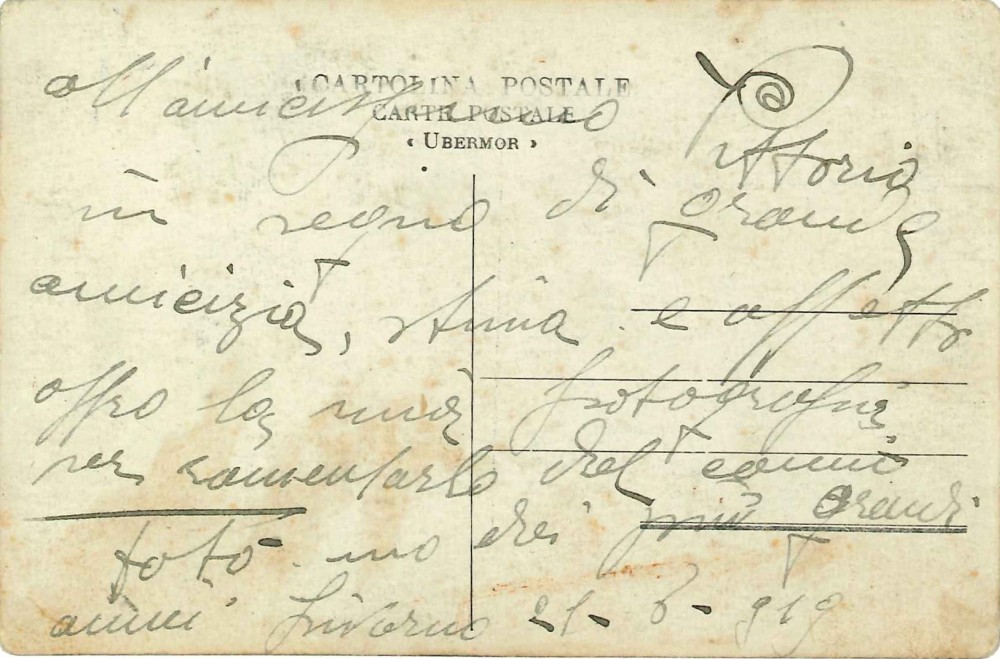 CARTOLINA POSTALE
CARTE POSTALE
« UBERMOR »
All'amicissimo Vittorio
in segno di grande
amicizia, stima e affetto
offro la mia fotografia
per
foto mo dei più grandi
amici Livorno 21-6-919